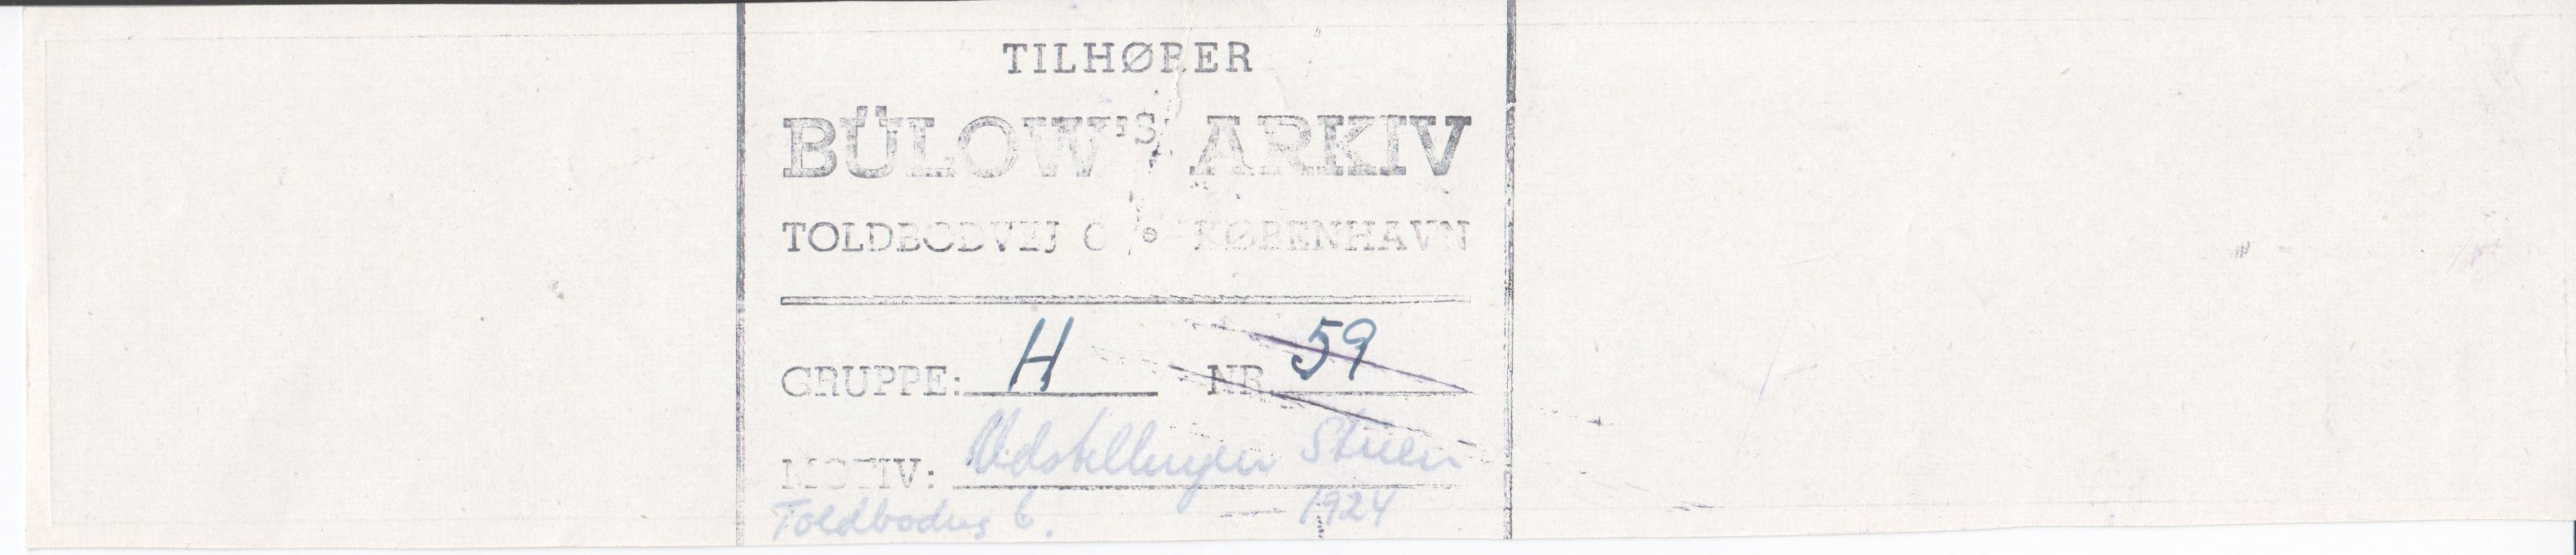 TILHØRER
BÜLOW'S ARKIV
TOLDBODVEJ 6 ∘ KØBENHAVN
GRUPPE: H NR. 59
MOTIV: Udstillingen Stuen
Toldbodvej 6. 1924